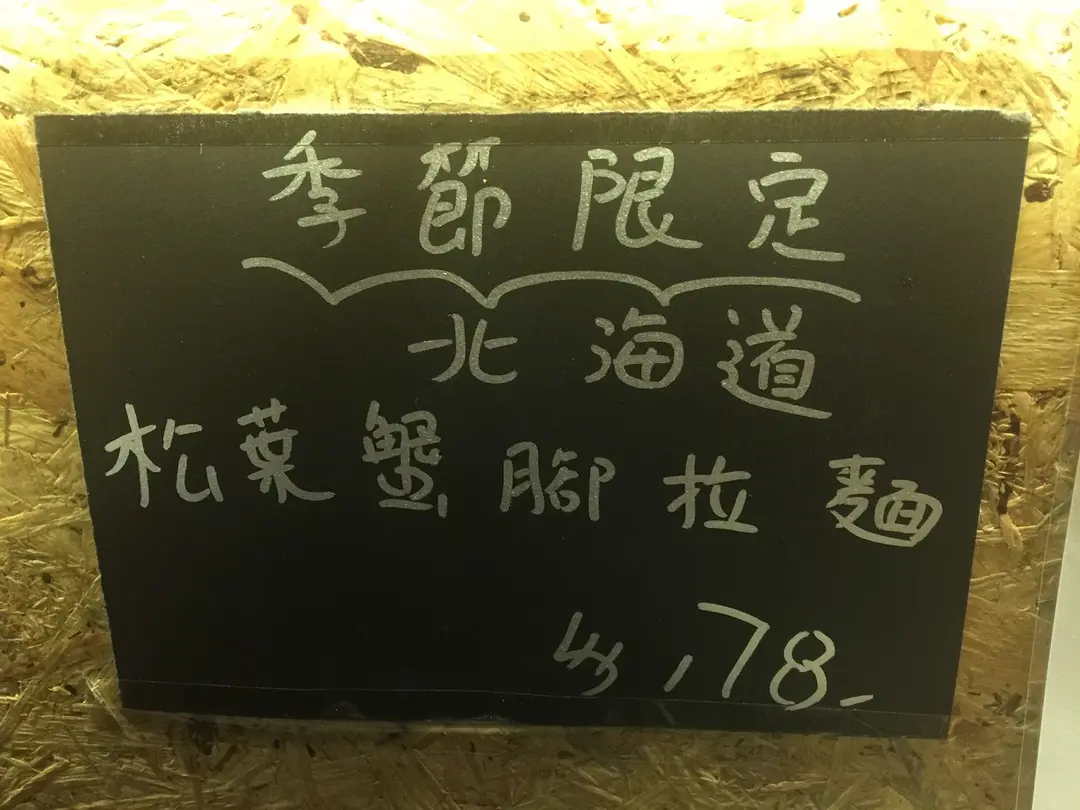 季節限定
北海道
松葉蟹腳拉麵
$178-